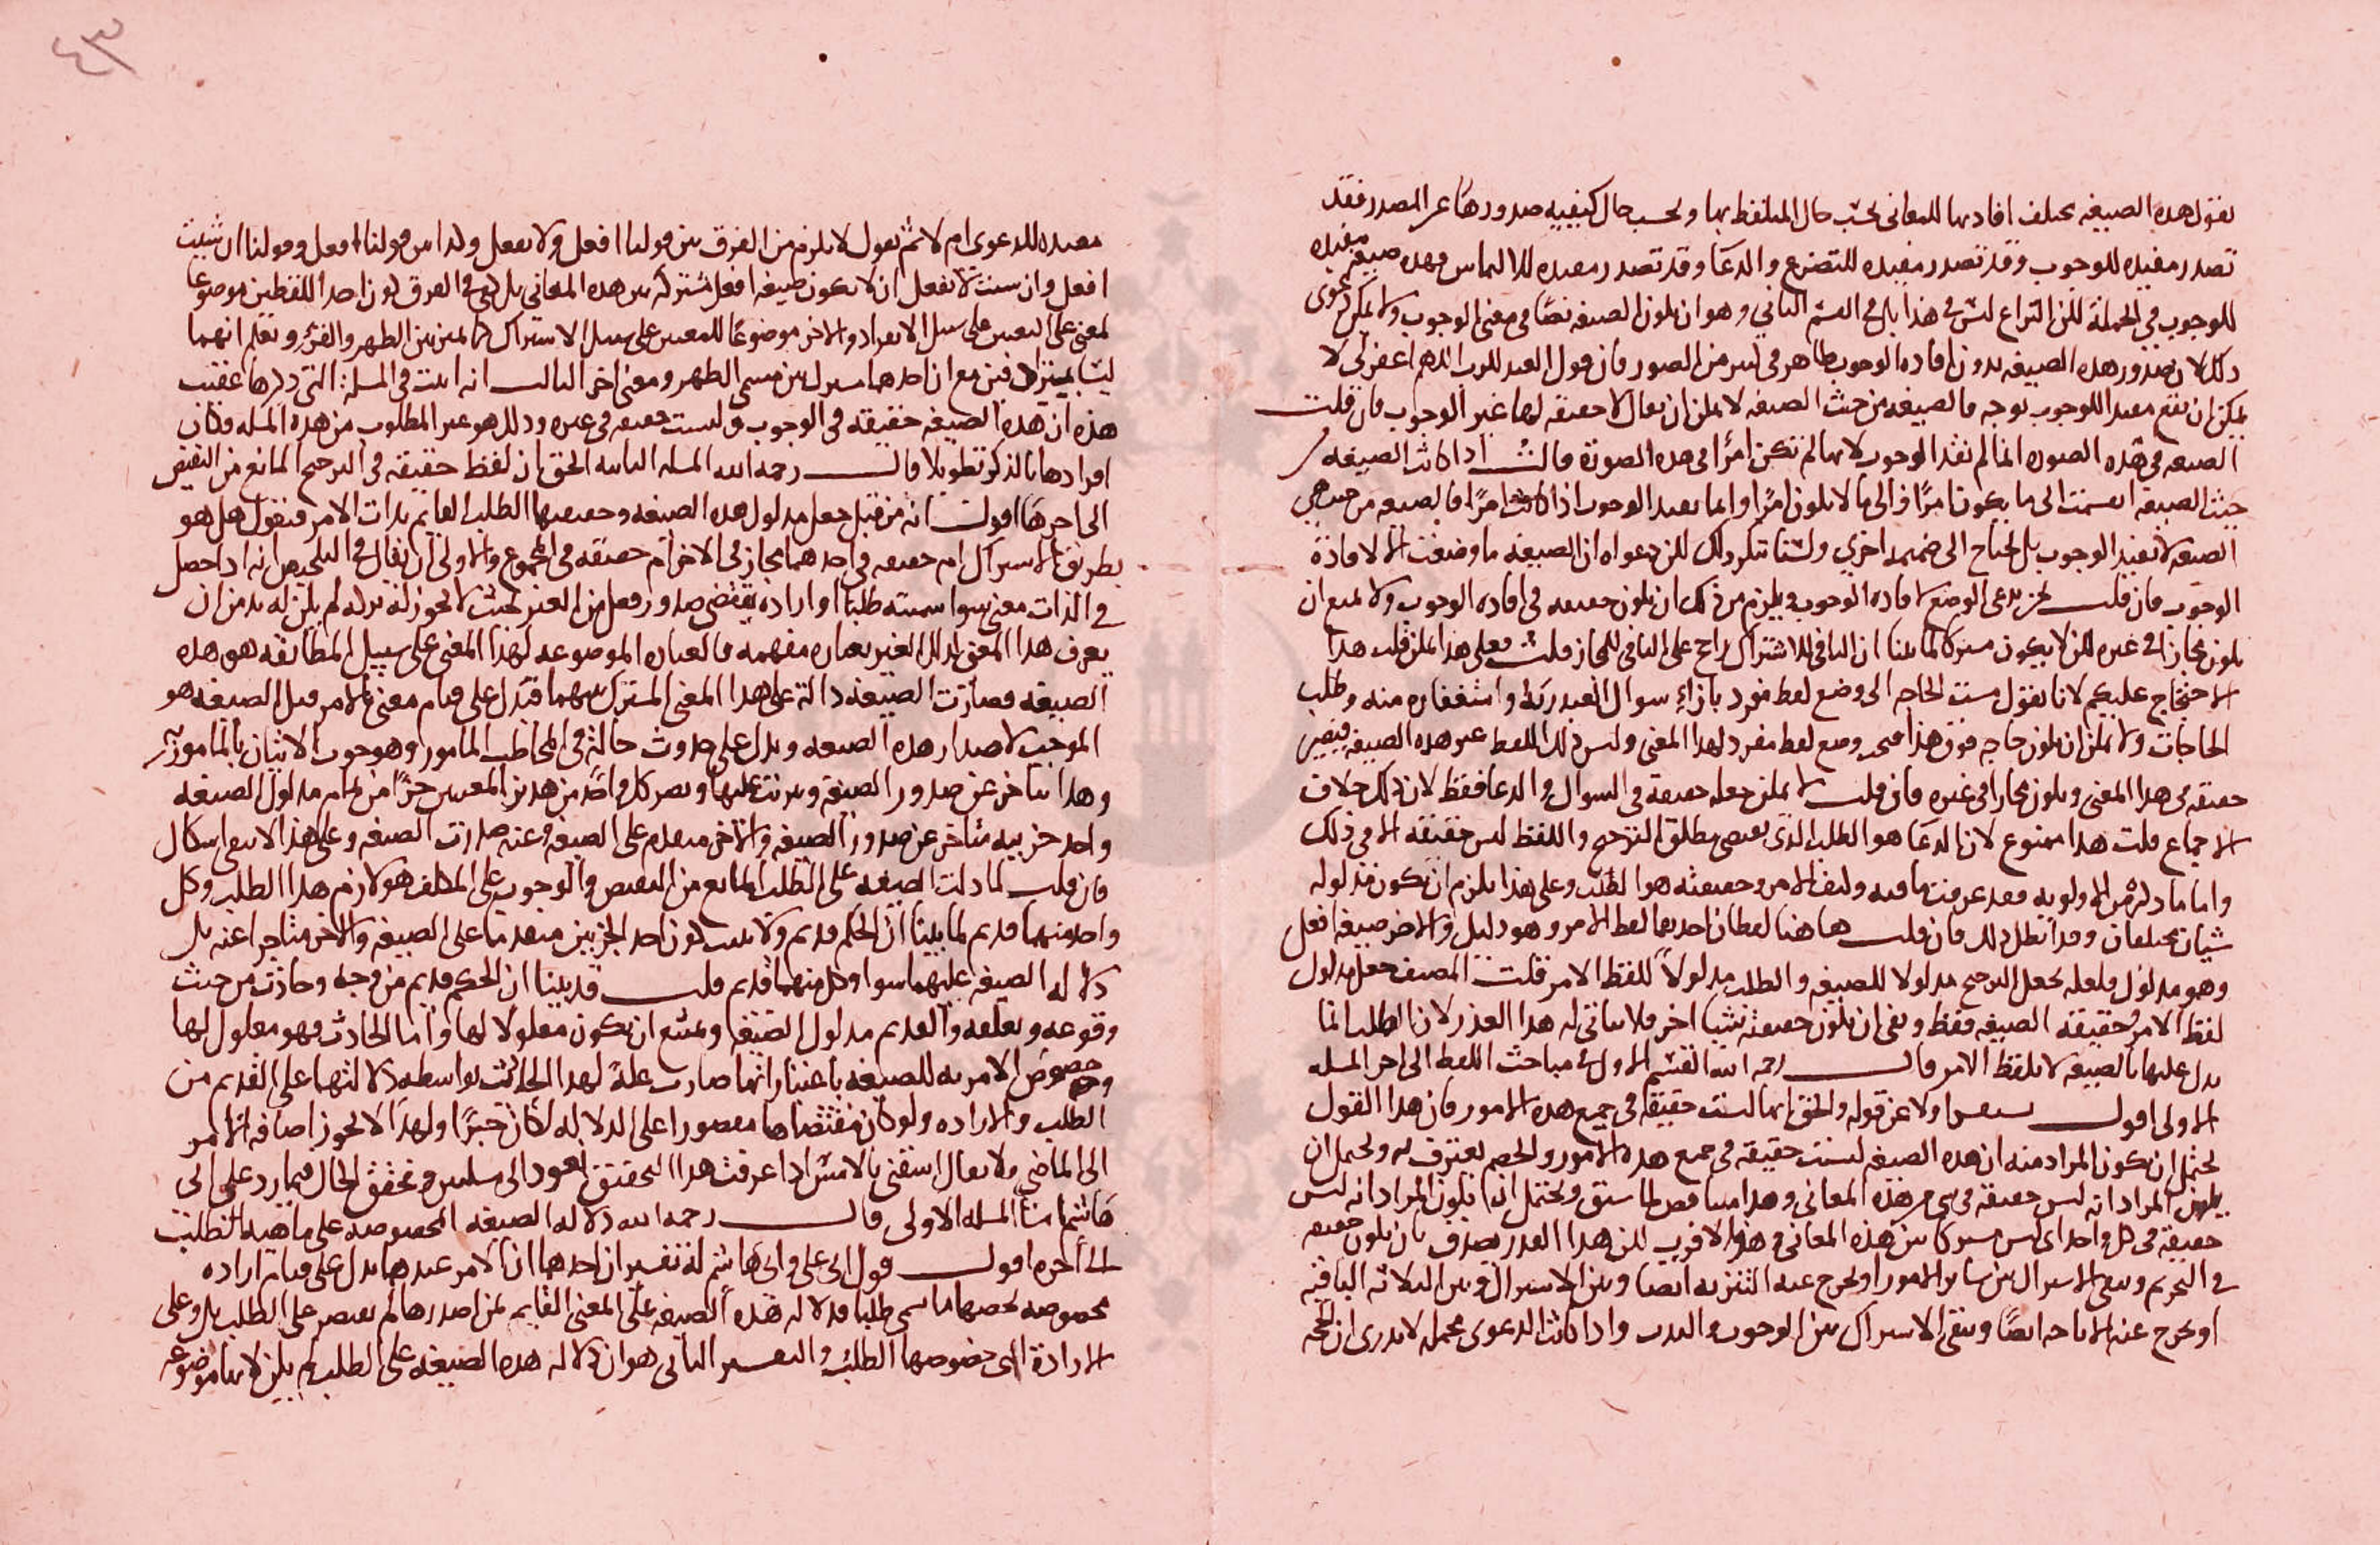 نقول هذه الصيغه يختلف افادتها للمعانى بحسب حال المتلفظ بها وبحسب حال كيفييه صدورها عن المصدر فقد
تصدر مفيده للوجوب وقد تصدر مفيده للتضرع والدعا وقد تصدر مفيده للالتماس وهده صيغه مفيده
للوجوب فى الجملة لكن النزاع ليس فى هذا بل فى القسم الثانى وهو ان يكون الصيغه نصا فى معنى الوجوب ولا يمكن دعوى
ذلك لان صدور هذه الصيغه بدون افاده الوجوب ظاهر فى كثير من الصور فان قول العبد للرب اللهم اغفر لى لا
يمكن ان يقع مفيدا للوجوب بوجه فالصيغه من حيث الصيغه لا يمكن ان يقال لا حقيقه لها غير الوجوب فان قلت
الصيغه فى هذه الصوره انما لم تفد الوجوب لانها لم تكن امرا فى هذه الصورة قلت اذا كانت الصيغه من
حيث الصيغه انقسمت الى ما يكون امرا والى ما لا يكون امرا وانما يفيد الوجوب اذا كانت امرا فالصيغه من حيث هى
الصيغه لا تفيد الوجوب بل يحتاج الى ضميمه اخرى ولسنا ننكر ذلك لكن دعواه ان الصيغه ما وضعت الا لافادة
الوجوب فان قلت نحن ندعى الوضع لافاده الوجوب ويلزم من ذلك ان يكون حقيقه فى افاده الوجوب ولا يمنع ان
يكون مجازا فى غيره لكن لا يكون مشتركا لما بينا ان النافى للاشتراك راجح على النافى للمجاز قلت فعلى هذا يمكن قلب هذا
الاحتجاج عليكم لانا نقول مست الحاجه الى وضع لفظ مفرد بازاء سوال العبد ربه واستغفاره منه وطلب
الحاجات ولا يمكن ان يكون حاجه فوق هذا فيجب وضع لفظ مفرد لهذا المعنى وليس ذلك اللفظ غير هذه الصيغه فيصير
حقيقه فى هذا المعنى ويكون مجازا فى غيره فان قلت لا يمكن جعله حقيقة فى السوال والدعا فقط لان ذلك خلاف
الاجماع قلت هذا ممنوع لان الدعا هو الطلب الذى يقتضى مطلق الترجيح واللفظ ليس حقيقه الا فى ذلك
واما ما ذكره من الاولويه فقد عرفت ما فيه وليف الامر وحقيقته هو الطلب وعلى هذا يلزم ان يكون مدلوله
شيئان مختلفان وقد ابطل ذلك فان قلت ها هنا لفظان احدهما لفظ الامر وهو دليل والاخر صيغه افعل
وهو مدلول ولعله يجعل الترجيح مدلولا للصيغه والطلب مدلولا للفظ الامر قلت المصنف جعل مدلول
لفظ الامر حقيقه الصيغه فقط ونفى ان يكون حقيقة شيا اخر فلا يتاتى له هذا العذر لان الطلب انما
يدل عليها بالصيغه لا بلفظ الامر قال رحمه الله القسم الاول فى مباحث اللفظ الى اخر المسله
الاولى اقول اولا عن قوله والحق انها ليست حقيقه فى جميع هذه الامور فان هذا القول
يحتمل ان يكون المراد منه ان هذه الصيغه ليست حقيقه فى جميع هذه الامور والخصم يعترف به ويحتمل ان
يكون المراد انه ليس حقيقه فى شى من هذه المعانى وهذا مناقض لما سبق ويحتمل انه يكون المراد انه ليس
حقيقه فى كل واحد اى ليس مشتركا بين هذه المعانى وهذا الاقرب لكن هذا القدر يصدق بان يكون حقيقه
فى التحريم ونفى الاشتراك بين ساير الامور او يخرج عنه التنزيه ايضا وبين الاشتراك وبين الثلاثه الباقيه
او يخرج عنه الاباحه ايضا وبقى الاشتراك بين الوجوب والندب واذا كانت الدعوى مجمله لا يدرى ان الحجه
مفيده للدعوى ام لا ثم نقول لا يلزم من الفرق بين قولنا افعل ولا تفعل وكذا بين قولنا افعل وقولنا ان شئت
افعل وان شئت لا تفعل ان لا يكون صيغه افعل مشتركه بين هذه المعانى بل يكفى فى الفرق كون احد اللفظين موضوعا
لمعنى على التعيين على سبيل الانفراد والاخر موضوعا للمعنيين على سبيل الاشتراك كما يميز بين الطهر والقرؤ ونعلم انهما
ليسا بمترادفين مع ان احدهما مشترك بين مسمى الطهر ومعنى اخر الثالث انه اثبت فى المسلة التى ذكرها عقيب
هذه ان هذه الصيغه حقيقه فى الوجوب وليست حقيقه فى غيره وذلك هو عين المطلوب من هذه المسله فكان
افرادها بالذكر تطويلا قال رحمه الله المسله الثانيه الحق ان لفظ حقيقه فى الترجيح المانع من النقيض
الى اخرها اقول انه من قبل جعل مدلول هذه الصيغه وحقيقتها الطلب القايم بذات الامر فنقول هل هو
بطريق الاشتراك ام حقيقه فى احدهما مجاز فى الاخر ام حقيقه فى المجموع والاولى ان يقال فى التلخيص انه اذا حصل
فى الذات معنى سوا سميته طلبا او اراده يقتضى صدور فعل من الغير بحيث لا يجوز له تركه لم يكن له بد من ان
يعرف هذا المعنى لذلك الغير بعباره مفهمه فالعباره الموضوعه لهذا المعنى على سبيل المطابقه هو هذه
الصيغه فصارت الصيغه دالة على هذا المعنى المشترك بينهما فتدل على قيام معنى بالامر قبل الصيغه هو
الموجب لاصدار هذه الصيغه ويدل على حدوث حالة فى المخاطب المامور وهو وجوب الاتيان بالمامور به
وهذا يتاخر عن صدور الصيغه ويترتب عليها ويصير كل واحد من هذين المعنيين جزا من تمام مدلول الصيغه
واحد جزييه متاخر عن صدور الصيغه والاخر متقدم على الصيغه وعنه صدرت الصيغه وعلى هذا لا يبقى اشكال
فان قلت لما دلت الصيغه على الطلب المانع من النقيض والوجوب على المكلف هو لازم هذا الطلب وكل
واحد منهما قديم لما بينا ان الحكم قديم ولا يثبت كون احد الجزيين متقدما على الصيغه والاخر متاخرا عنه بل
دلاله الصيغه عليهما سوا وكل منهما قديم قلت قد بينا ان الحكم قديم من وجه وحادث من حيث
وقوعه وتعلقه والقديم مدلول الصيغه ويمتنع ان يكون معلولا لها واما الحادث فهو معلول لها
وخصوص الامر به للصيغه باعتبار انها صارت علة لهذا الحادث بواسطه دلالتها على القديم من
الطلب والاراده ولو كان مقتضاها مقصورا على الدلاله لكان خبرا ولهذا لا يجوز اضافه الامر
الى الماضى ولا يقال اسقنى بالامس اذا عرفت هذا التحقيق نعود الى مسلتين ونحقق الحال فيما رد على ابى
هاشم المسله الاولى قال رحمه الله دلاله الصيغه المخصوصه على ماهيه الطلب
الى اخره اقول قول ابى على وابى هاشم له تفسيران احدهما ان الامر عندهما يدل على قيام اراده
مخصوصه يخصها ما سمى طلبا فدلاله هذه الصيغه على المعنى القايم بمن اصدرها لم يقتصر على الطلب بل وعلى
الارادة التى خصوصها الطلب والتفسير الثانى هو ان دلاله هذه الصيغه على الطلب لم يكن لانها موضوعه